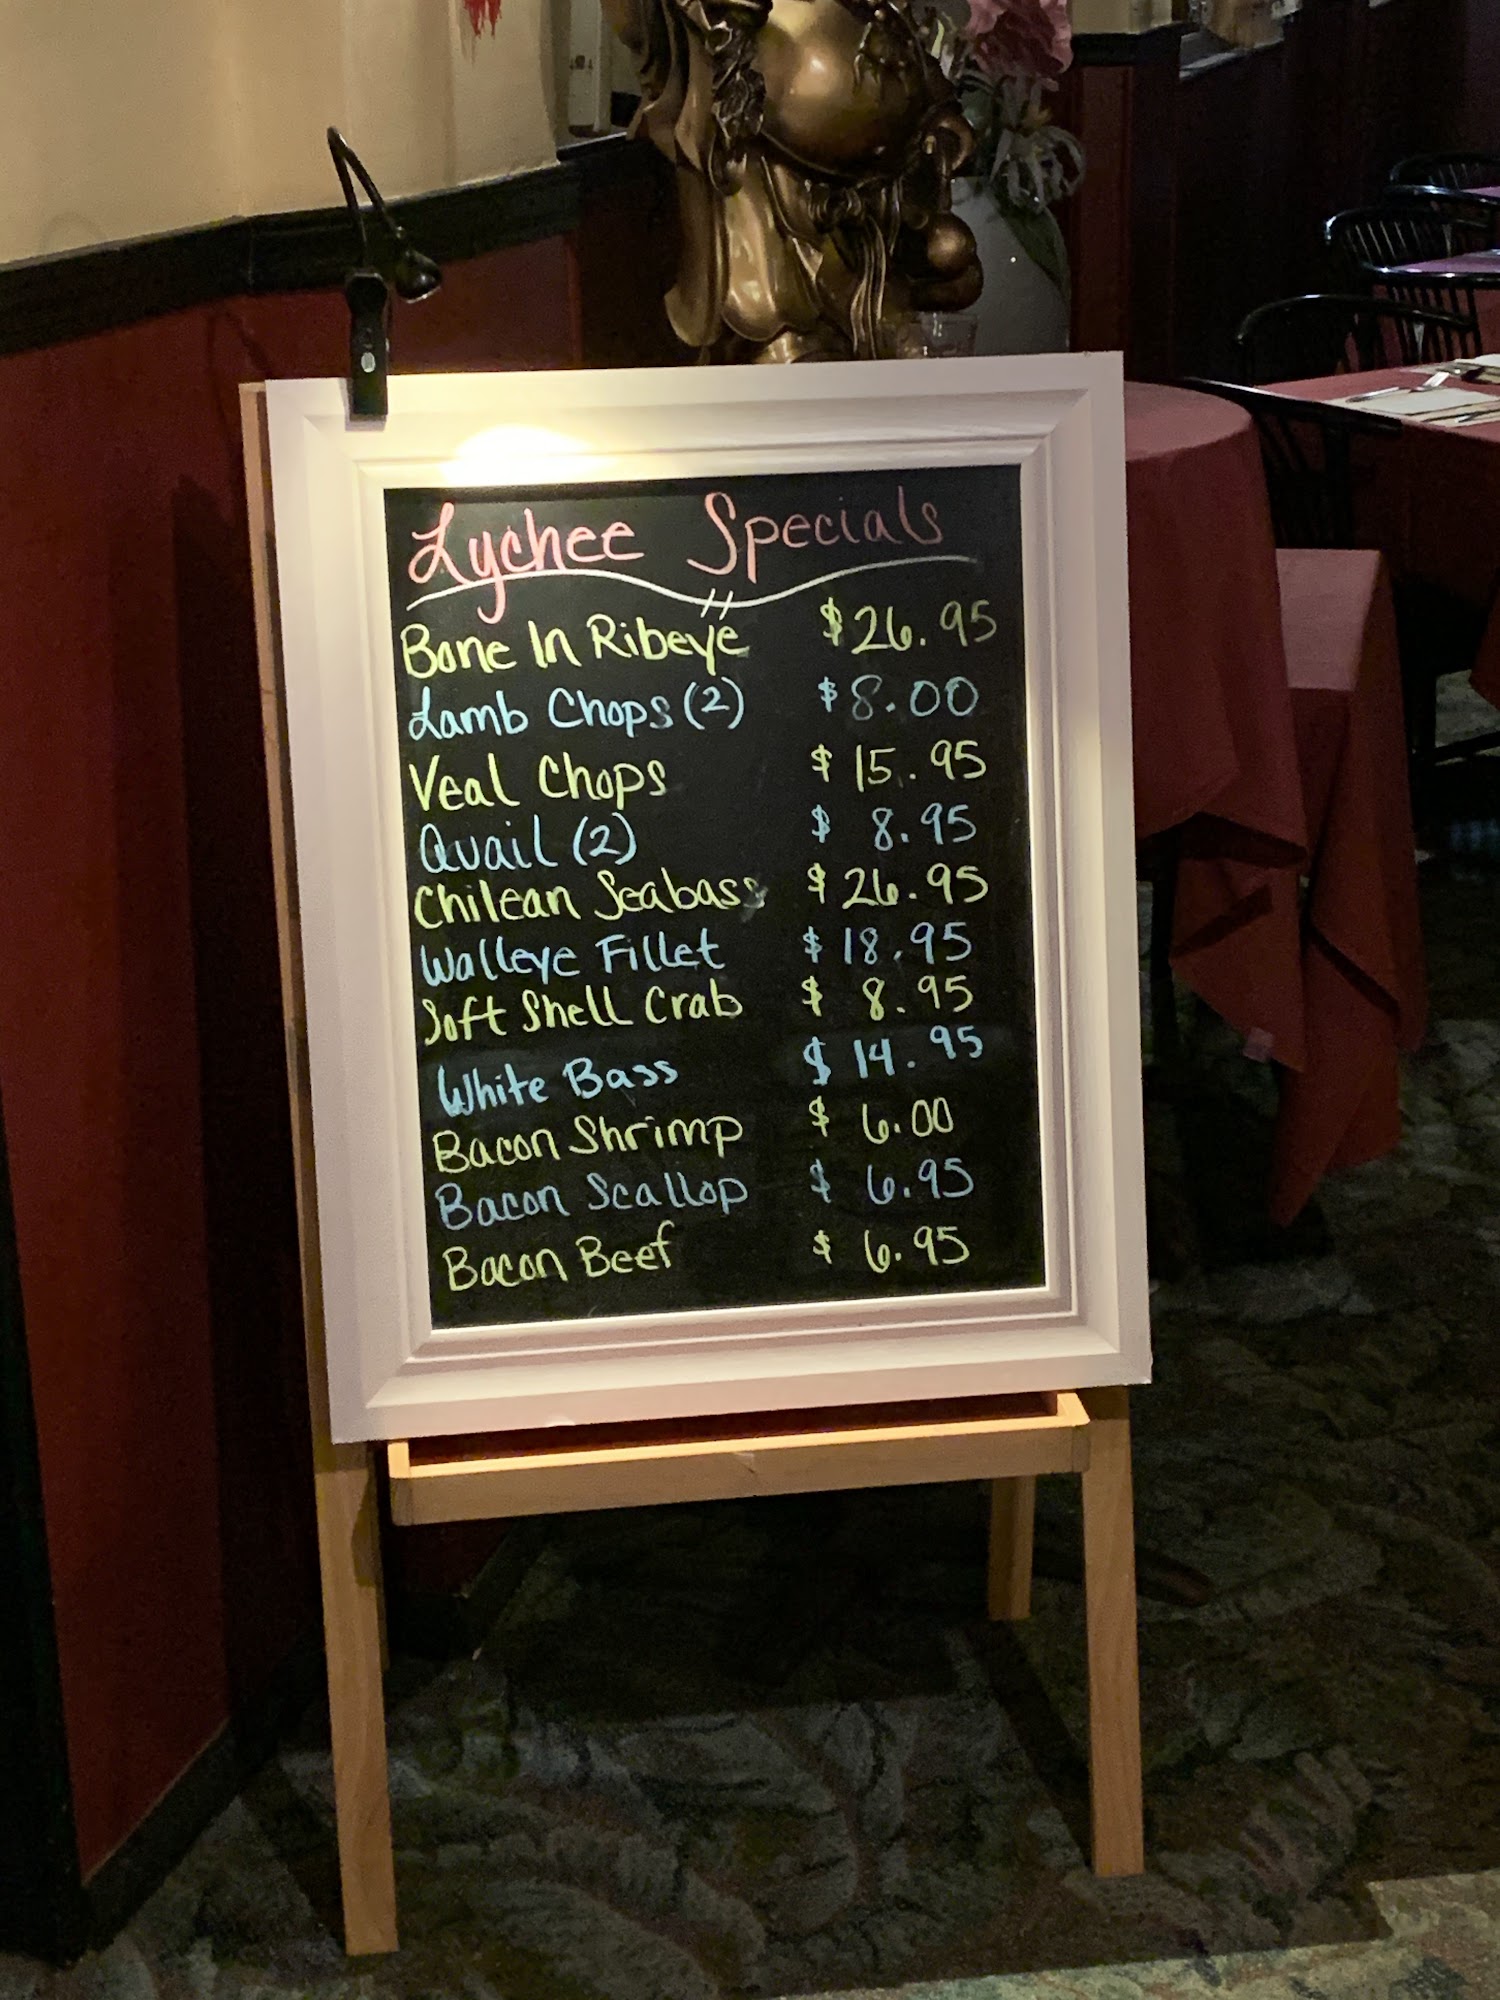 Lychee Specials
Bone In Ribeye $26.95
Lamb Chops (2) $8.00
Veal Chops $15.95
Quail (2) $8.95
Chilean Seabass $26.95
Walleye Fillet $18.95
Soft Shell Crab $8.95
White Bass $14.95
Bacon Shrimp $6.00
Bacon Scallop $6.95
Bacon Beef $6.95